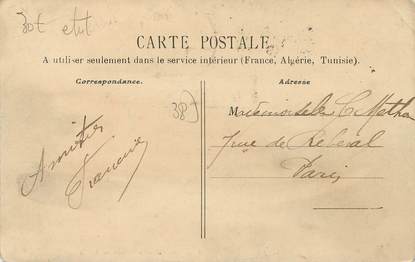 30€ etut
CARTE POSTALE
A utiliser seulement dans le service intérieur (France, Algérie, Tunisie).
Correspondance.
Adresse
38
Mademoiselle C
rue de Rebeval
Paris
Amitiés
Francine